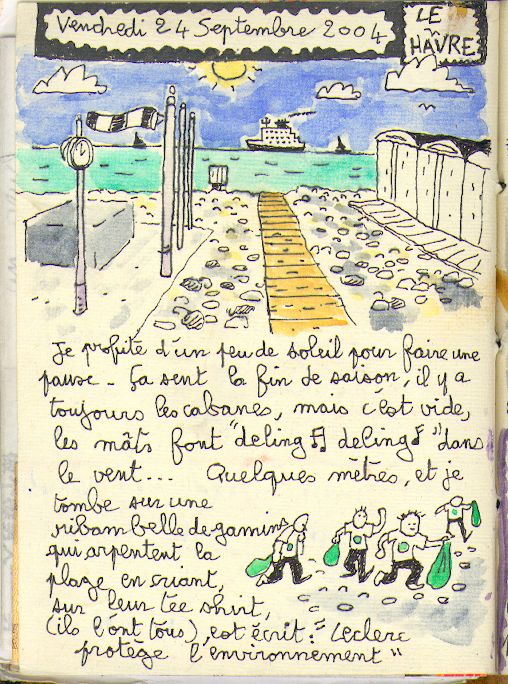 Vendredi 24 Septembre 2004
LE
HÂVRE
Je profite d'un peu de soleil pour faire une
pause - Ça sent la fin de saison, il y a
toujours les cabanes, mais c'est vide,
les mâts font "deling ♫ deling ♪" dans
le vent... Quelques mètres, et je
tombe sur une
ribambelle de gamins
qui arpentent la
plage en criant,
sur leur tee shirt,
(ils l'ont tous), est écrit : "Leclerc
protège l'environnement"